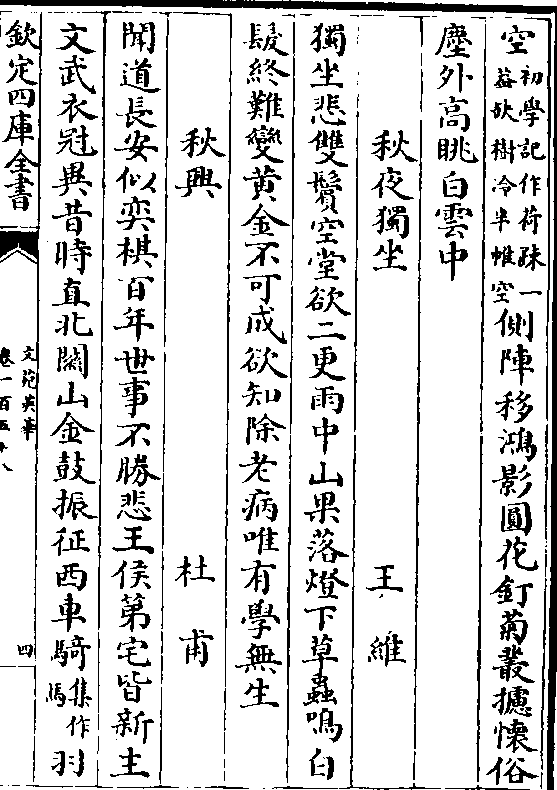 空初學記作荷疎一
蓋缺樹冷半帷空側陣移鴻影圓花釘菊叢攄懷俗
塵外高眺白雲中
秋夜獨坐 王維
獨坐悲雙鬢空堂欲二更雨中山果落燈下草蟲鳴白
髮終難變黄金不可成欲知除老病唯有學無生
秋興 杜甫
聞道長安似奕棋百年世事不勝悲王侯第宅皆新主
文武衣冠異昔時直北關山金鼓振征西車騎集作
馬羽
欽定四庫全書
文苑英華
卷一百五十八
四